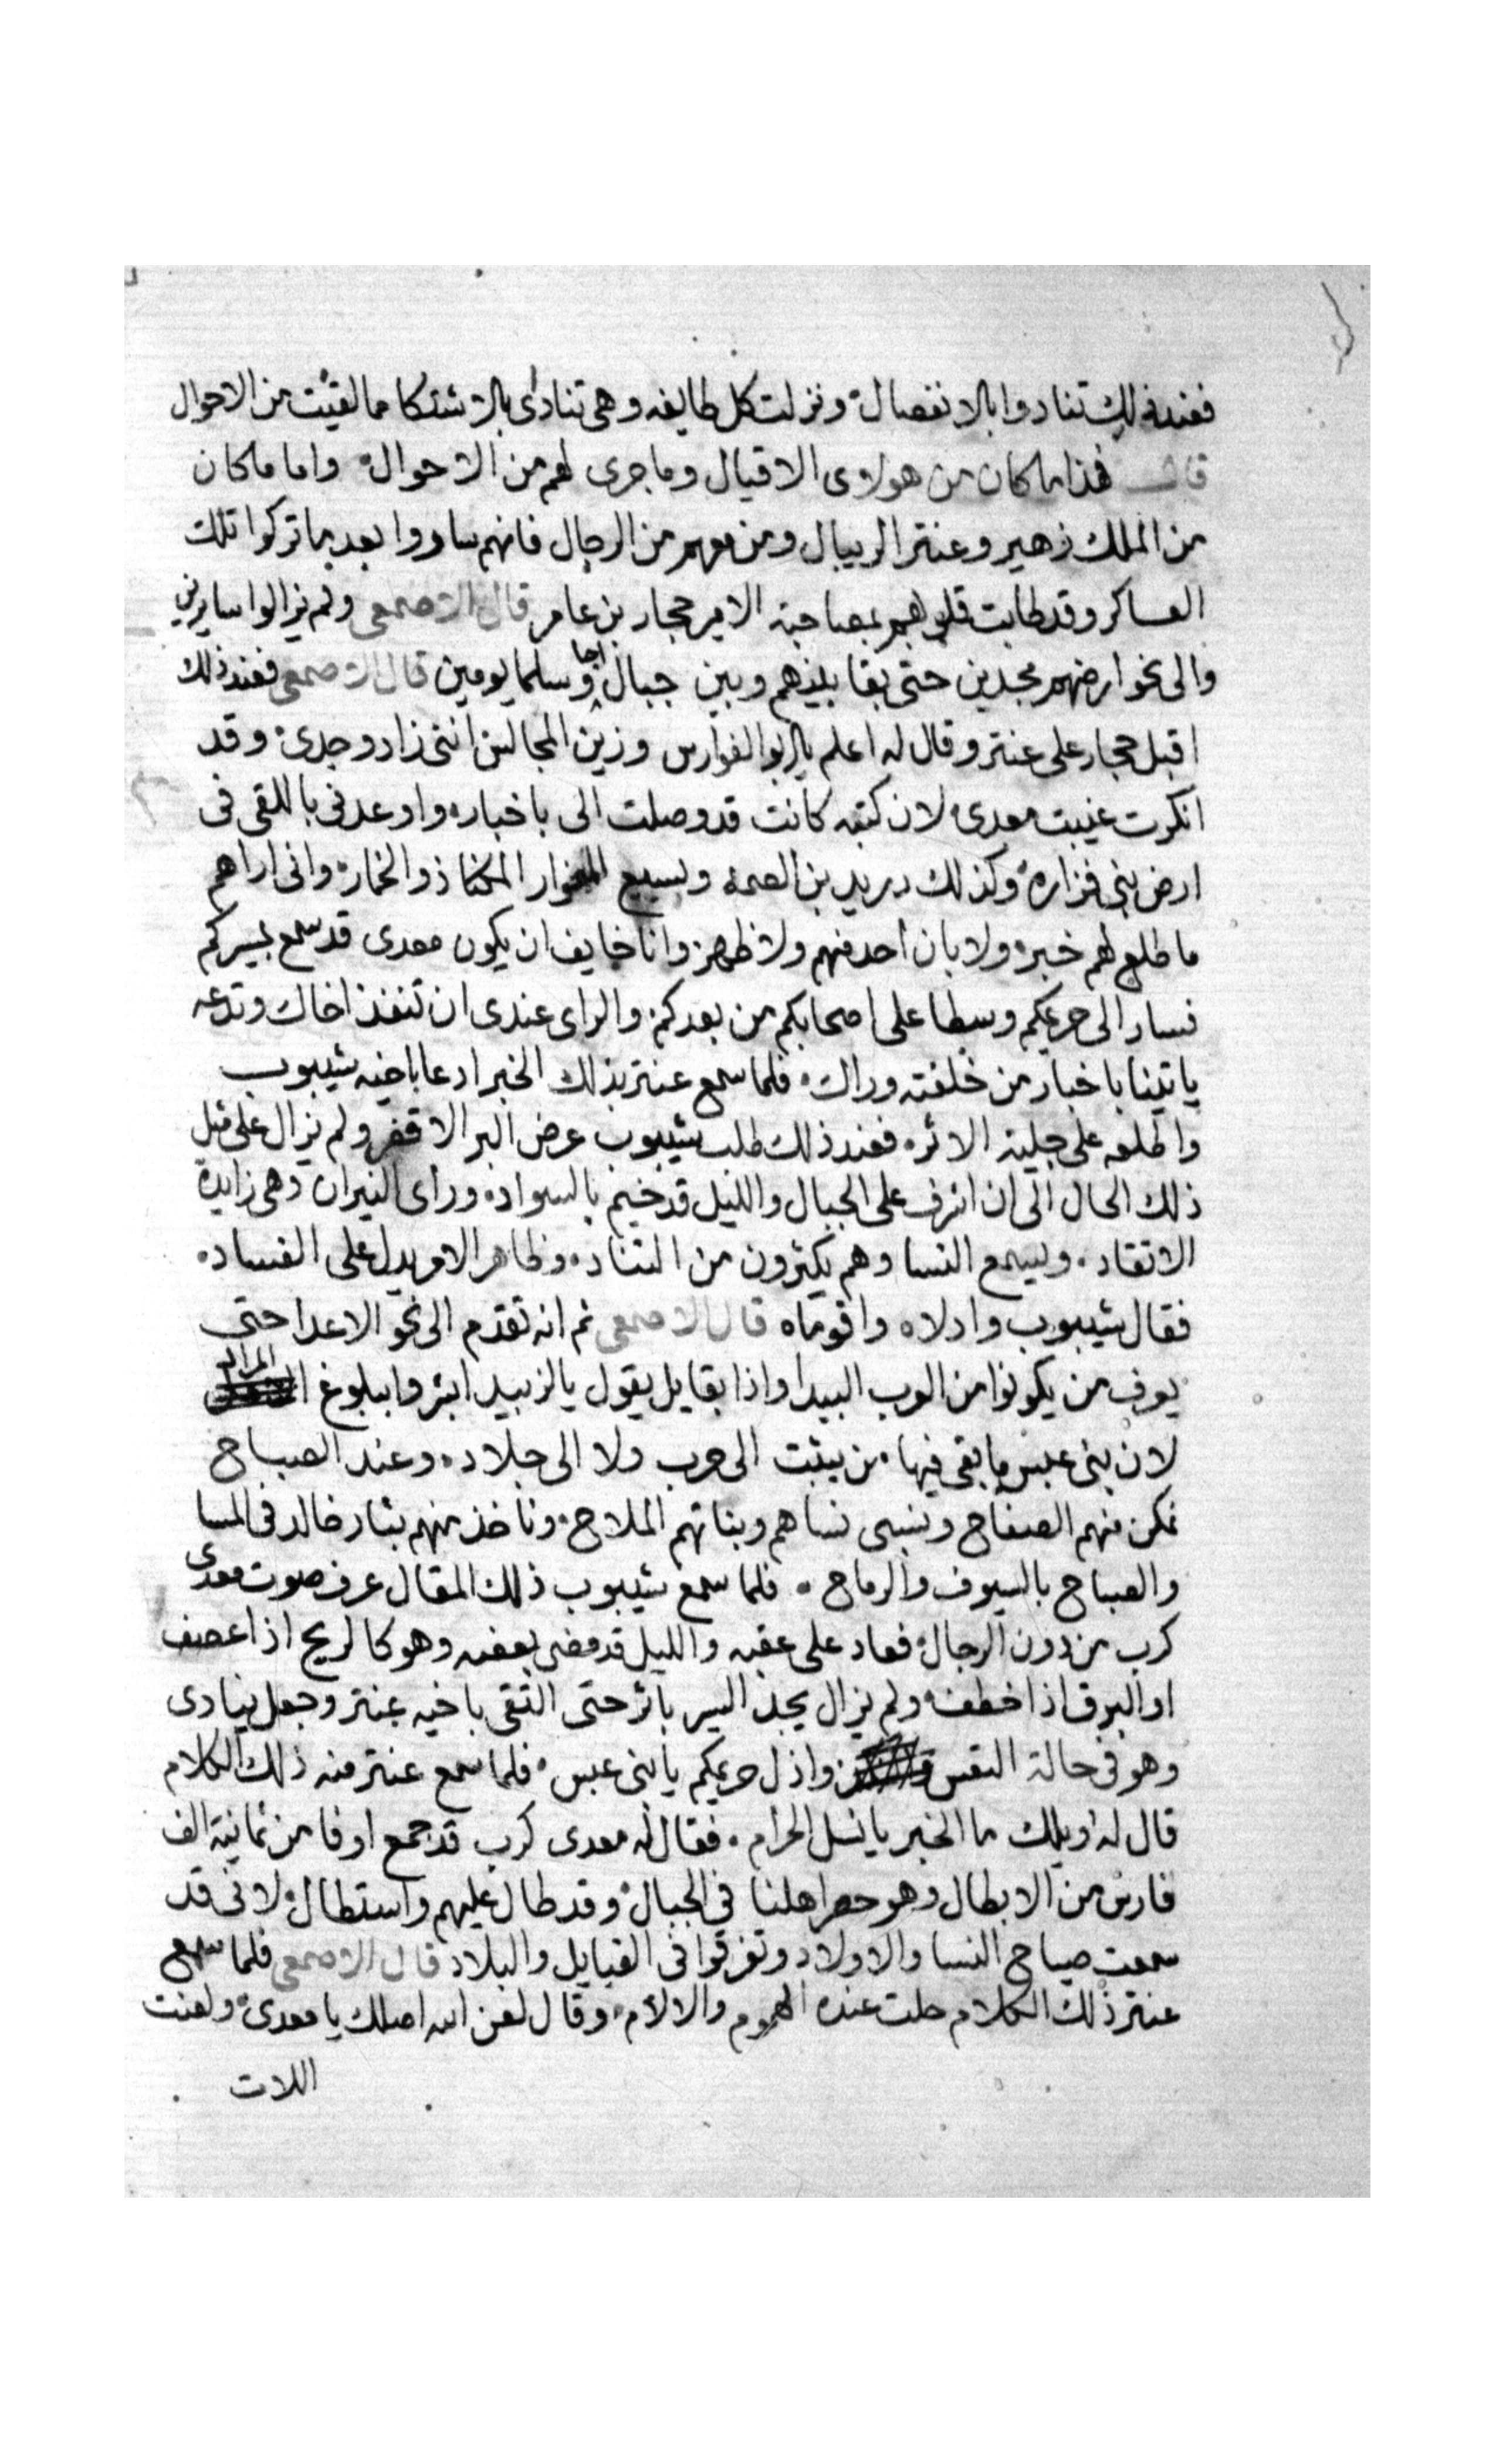 فعند ذلك تنادوا بالانفصال ونزلت كل طايفه وهى تنادى بالاشتكا مما لقيت من الاحوال
قال فهذا ما كان من هولاى الاقيال وما جرى لهم من الاحوال واما ما كان
من الملك زهير وعنتر الريبال ومن معهم من الرجال فانهم ساروا بعد ما تركوا تلك
العساكر وقد طابت قلوبهم بمصاحبة الامير حجار بن عامر قال الاصمعى ولم يزالوا سايرين
والى نحو ارضهم مجدين حتى بقا بينهم وبين جبال اجا وسلما يومين قال الاصمعى فعند ذلك
اقبل حجار على عنتر وقال له اعلم يا ابو الفوارس وزين المجالس اننى زاد وجدى وقد
انكرت غيبت معدى لان كتبه كانت قد وصلت الى باخباره واوعدنى باللقى فى
ارض بنى فزاره وكذلك دريد بن الصمه وسبيع المكنا ذو الخمار وانى اراهم
ما طلع لهم خبر ولا بان احد منهم ولا ظهر وانا خايف ان يكون معدى قد سمع بمسيركم
فسار الى حريمكم وسطا على اصحابكم من بعدكم والراى عندى ان تنفذ اخاك وتدعه
ياتينا باخبار من خلفته وراك فلما سمع عنتر بذلك الخبر ادعا باخيه شيبوب
واطلعه على جلية الاثر فعند ذلك طلب شيبوب عرض البر الاقفر ولم يزال على مثل
ذلك الحال الى ان اشرف على الجبال والليل قد خيم بالسواد وراى النيران وهى زايدة
الاتقاد وليسمع النسا وهم يكثرون من التناد وظاهر الامر يدل على الفساد
فقال شيبوب واذلاه واقوماه قال الاصمعى ثم انه تقدم الى نحو الاعدا حتى
يعرف من يكونوا من العرب البيدا واذا بقايل يقول يا لزبيد ابشروا ببلوغ المراد
لان بنى عبس ما بقى فيها من يثبت الى حرب ولا الى جلاد وعند الصباح
نمكن منهم الصفاح ونسبى نساهم وبناتهم الملاح وناخذ منهم بثار خالد فى المسا
والصباح بالسيوف والرماح فلما سمع شيبوب ذلك المقال عرف صوت معدى
كرب من دون الرجال فعاد على عقبه والليل قد مضى بعضه وهو كالريح اذا عصف
او البرق اذا خطف ولم يزال يجد السير باثر حتى التقى باخيه عنتر وجعل ينادى
وهو فى حالة التعس واذل حريمكم يا بنى عبس فلما سمع عنتر منه ذلك الكلام
قال له اويلك ما الخبر يا نسل الحرام فقال له معدى كرب قد جمع اوفا من ثمانية الف
فارس من الابطال وهو حصر اهلنا فى الجبال وقد طال عليهم واستطال لانى قد
سمعت صياح النسا والاولاد وتفرقوا فى القبايل والبلاد قال الاصمعى فلما سمع
عنتر ذلك الكلام حلت عنده الهموم والالام وقال لعن الله اصلك يا معدى ولعنت
اللات